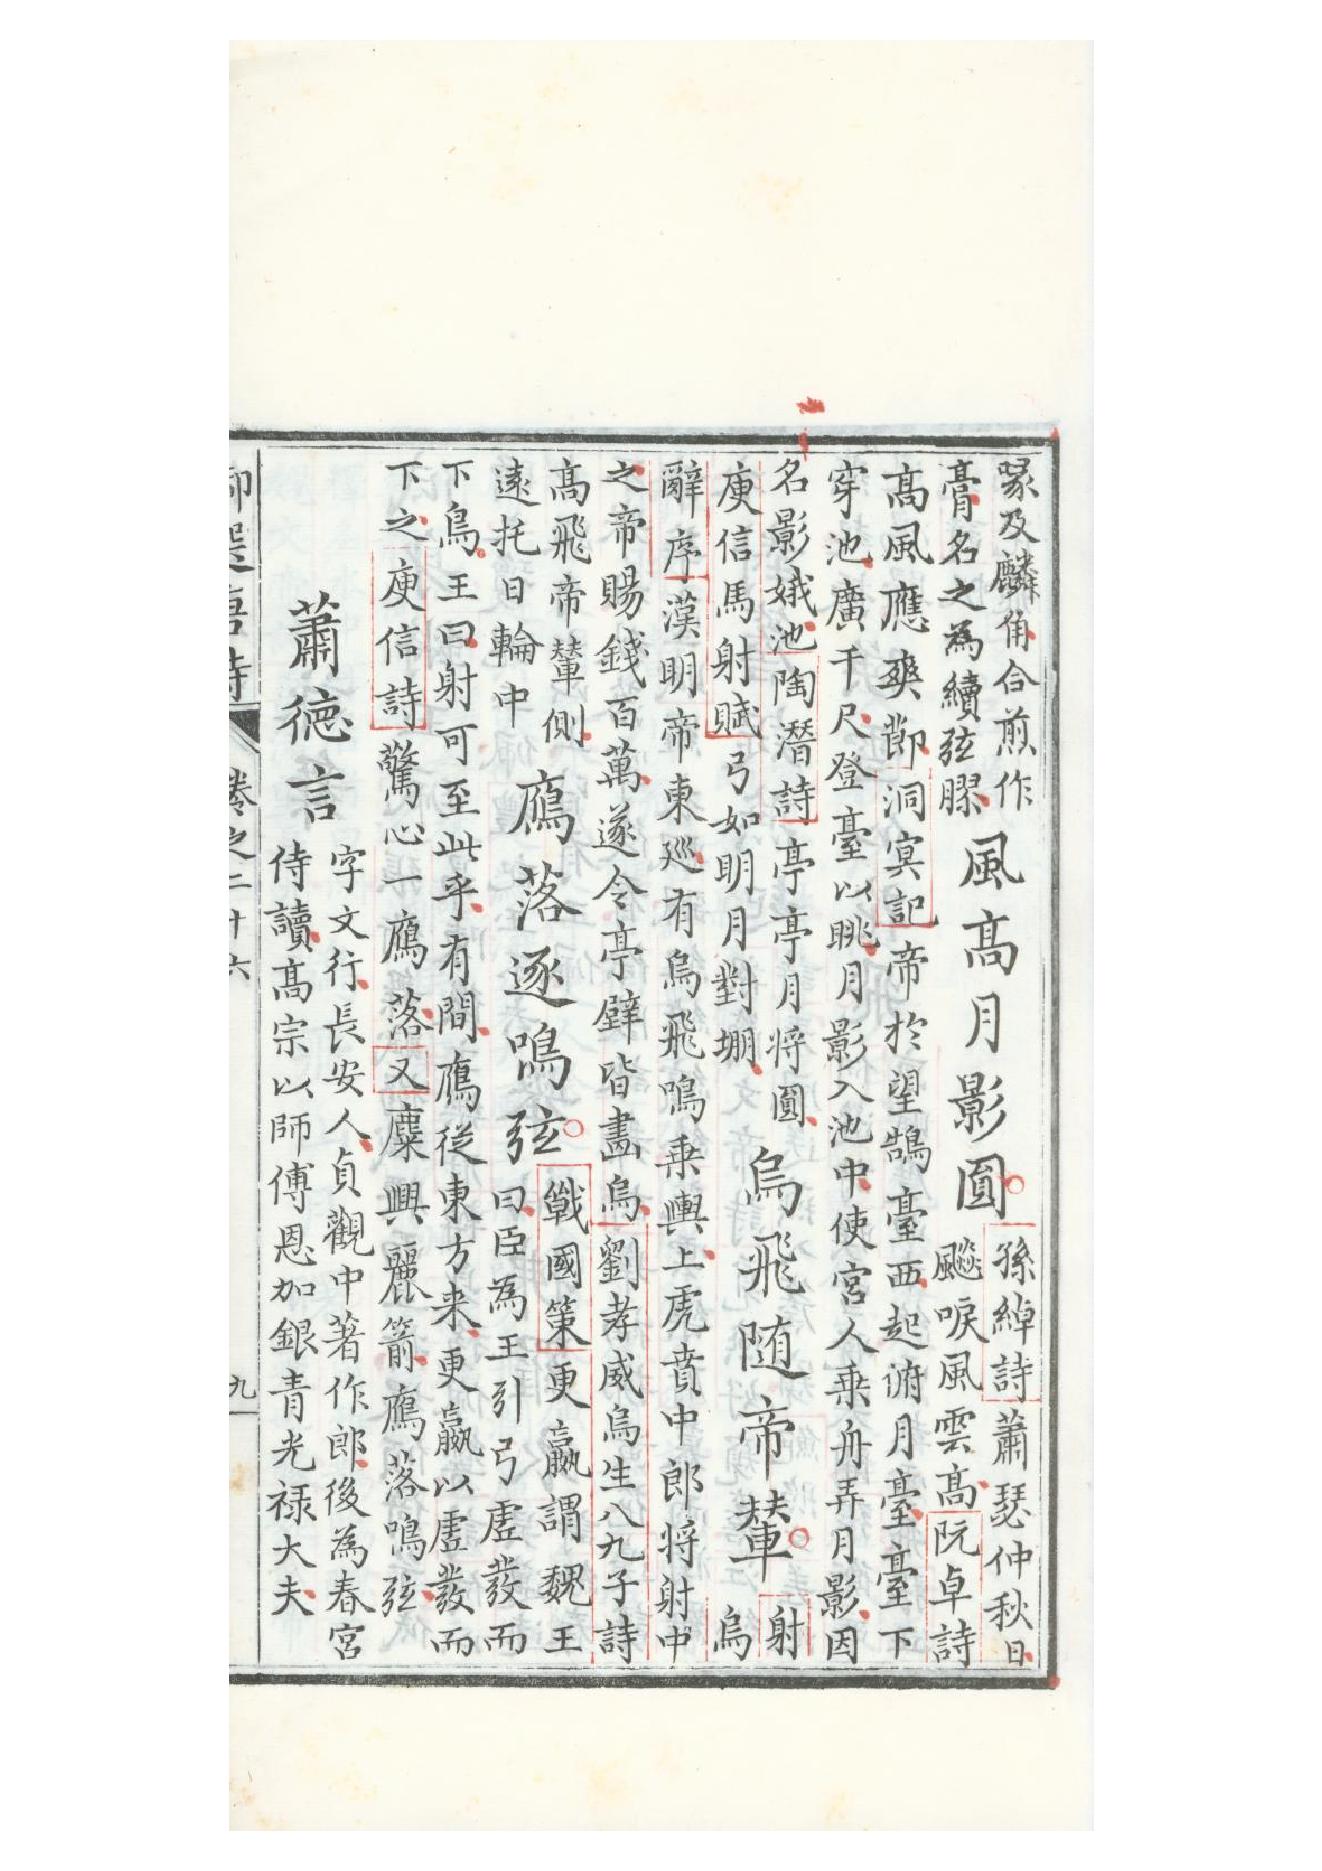 喙及麟角合煎作
膏名之為續弦膠
風高月影圓
孫綽詩蕭瑟仲秋日
飈唳風雲高阮卓詩
高風應爽節洞冥記帝於望鵠臺西起俯月臺臺下
穿池廣千尺登臺以眺月影入池中使宮人乘舟弄月影因
名影娥池陶潛詩亭亭月將圓
庾信馬射賦弓如明月對堋
烏飛隨帝輦
射
烏
辭序漢明帝東廵有烏飛鳴乘輿上虎賁中郎將射中
之帝賜錢百萬遂令亭壁皆畫烏劉孝威烏生八九子詩
高飛帝輦側
遠托日輪中
鴈落逐鳴弦
戰國策更羸謂魏王
曰臣為王引弓虛發而
下鳥王曰射可至此乎有間鴈從東方来更羸以虛發而
下之庾信詩驚心一鴈落又麋興麗箭鴈落鳴弦
蕭德言
字文行長安人貞觀中著作郎後為春宮
侍讀高宗以師傅恩加銀青光祿大夫
御選唐詩
卷之二十六
九